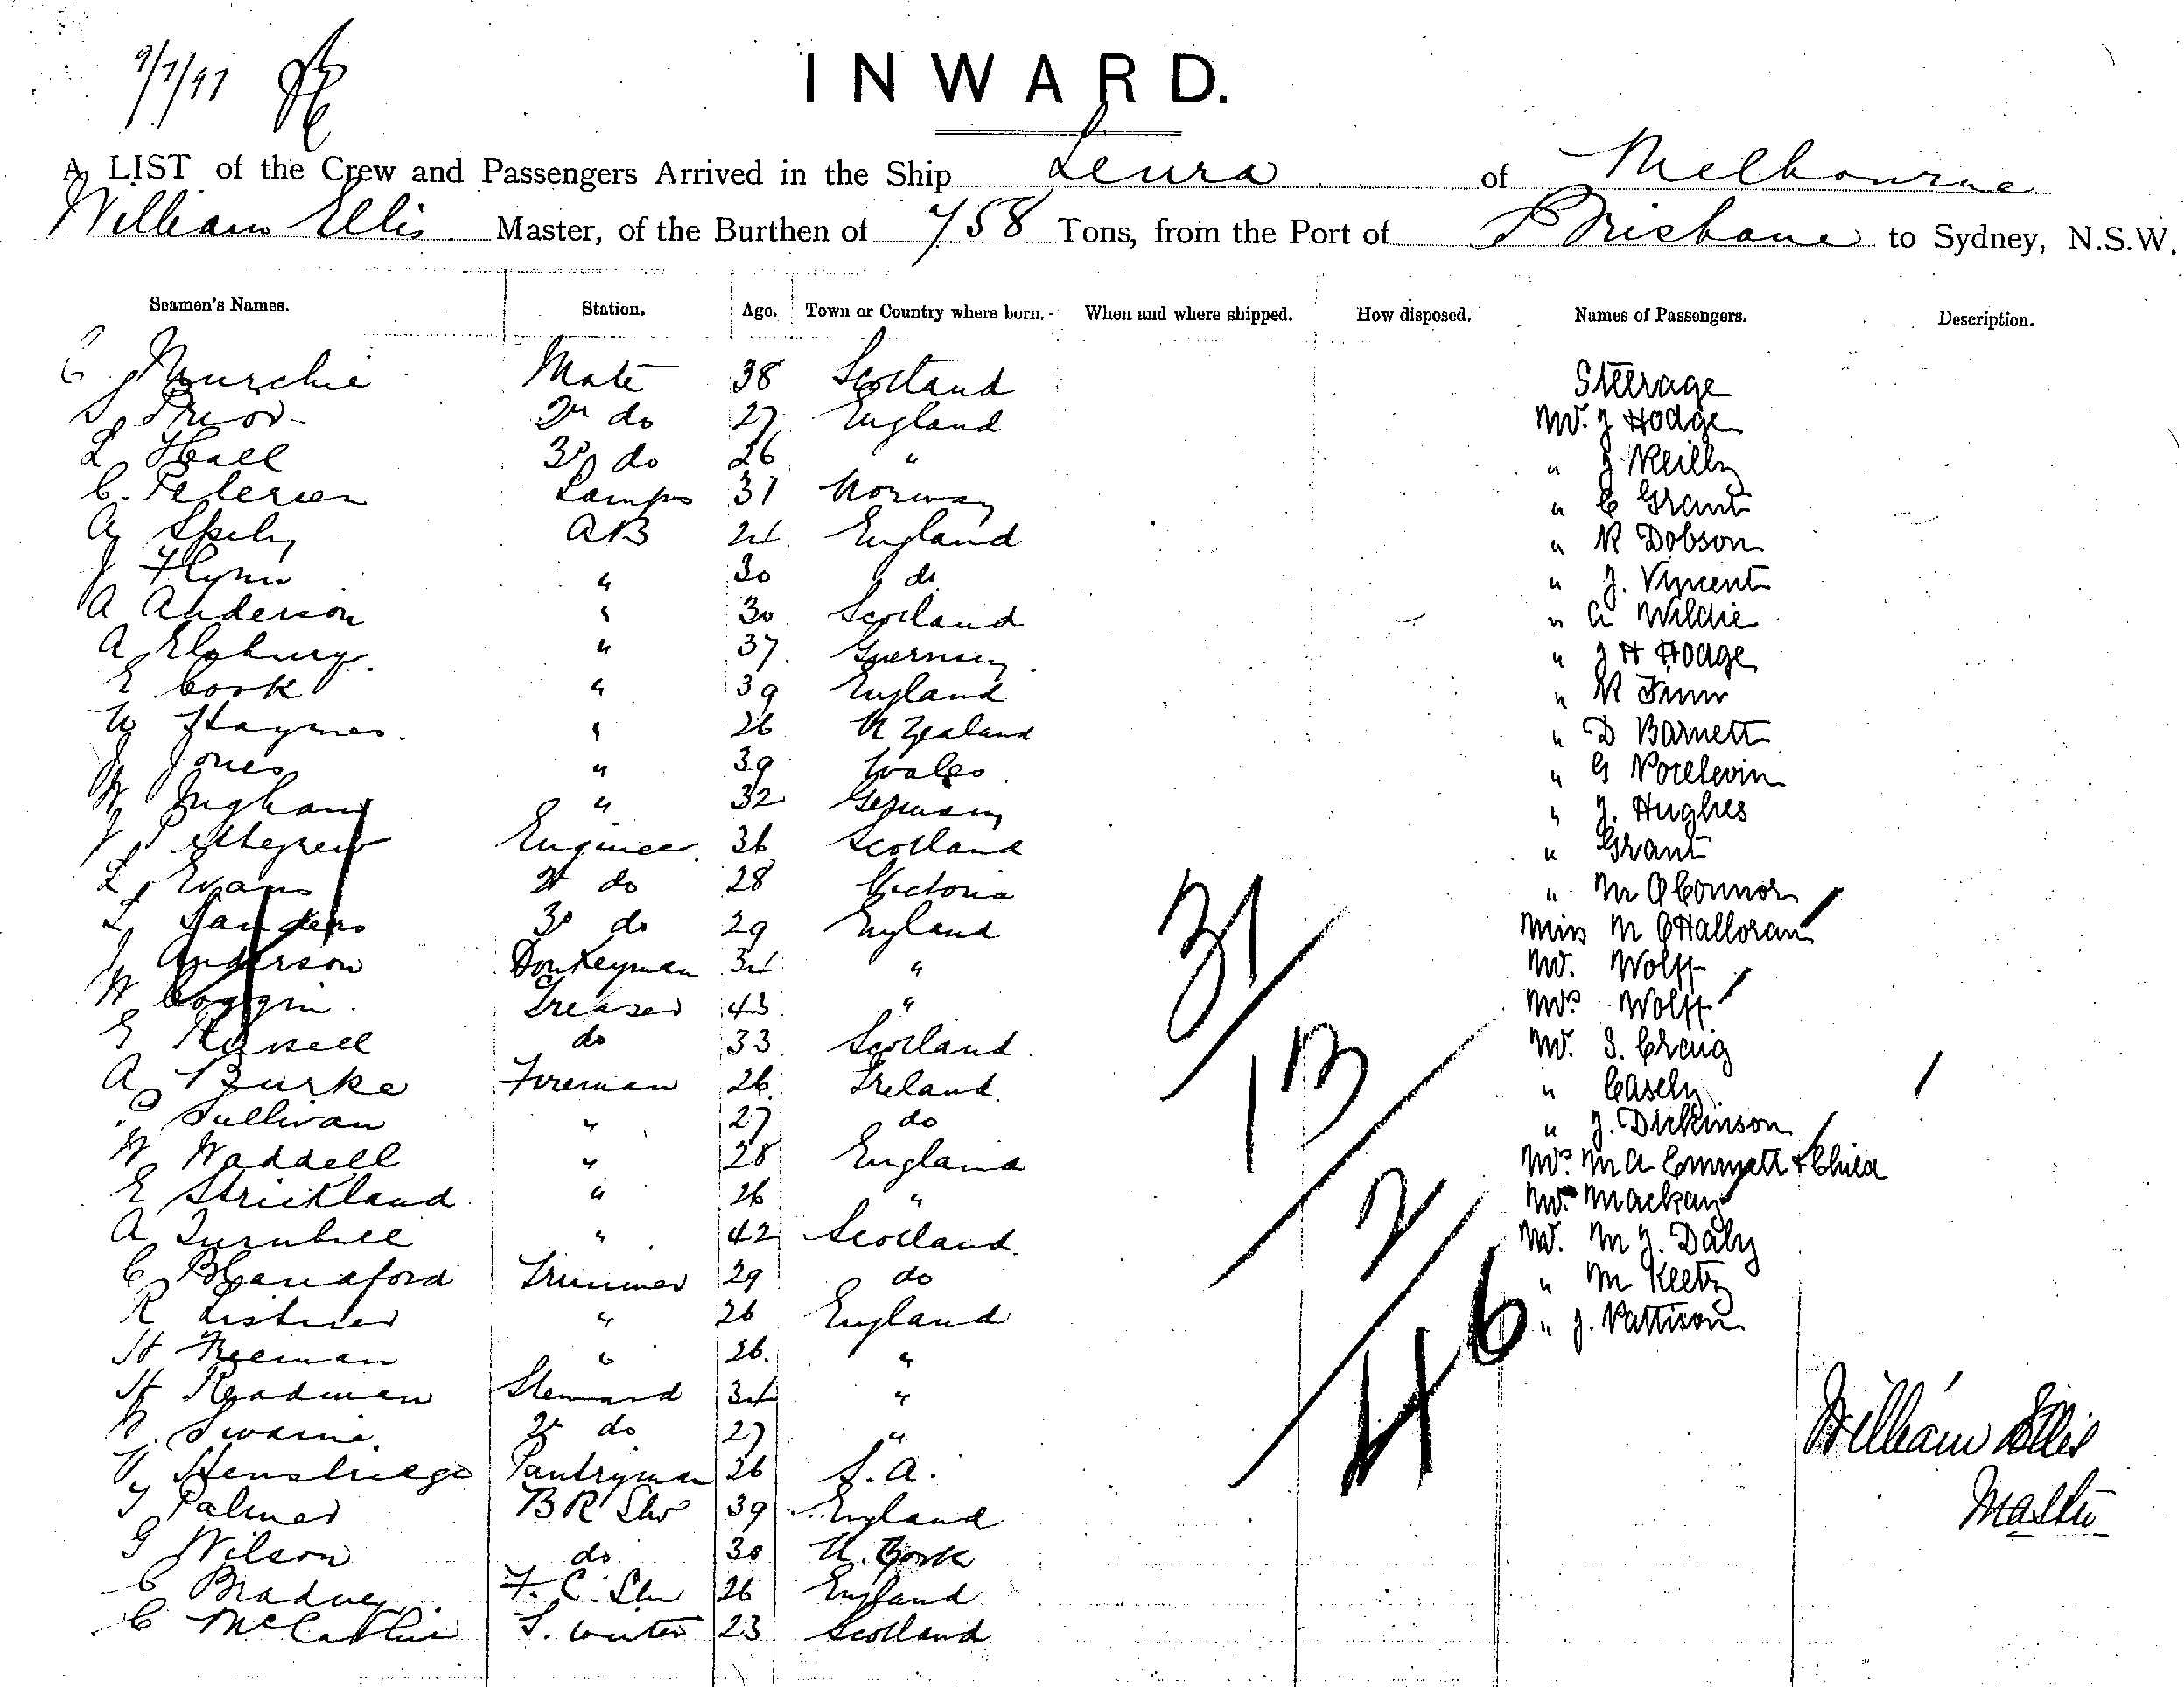 9/7/97
INWARD.
A LIST of the Crew and Passengers Arrived in the Ship Leura of Melbourne
William Ellis Master, of the Burthen of 758 Tons, from the Port of Brisbane to Sydney, N.S.W.
Seamen's Names. Station. Age. Town or Country where born. When and where shipped. How disposed. Names of Passengers. Description.
C Murchie Mate 38 Scotland Steerage
S. Prior 2nd do 27 England Mr. J Hodge
L Hall 3rd do 26 " " J Reilly
C. Petersen Lamps 31 Norway " C Grant
A AB 24 England " R Dobson
J Flynn " 30 do " J. Vincent
A Anderson " 30 Scotland " A Wildie
A Elsbury. " 37 Guernsey " J H Hodge
E Cook " 39 England " R Finn
W Haymes. " 26 N Zealand " D Barnett
J Jones " 39 Wales. " G Poidevin
W Ingham " 32 Germany " J. Hughes
J Pettegrew Engineer. 36 Scotland " Grant
L. Evans 2d do 28 Victoria " M O'Connor
L Sanders 3d do 29 England Miss M O'Halloran
J Anderson Donkeyman 34 " Mr. Wolff
W Coggin. Greaser 43 " Mrs Wolff
E Russell do 33 Scotland. Mr. S. Craig
A Burke Fireman 26 Ireland. " Casely
P Sullivan " 27 do " J. Dickinson
W Waddell " 28 England Mrs. M A Emmett & Child
E Strickland " 26 " Mackay
A Turnbull " 42 Scotland. Mr. M J. Daly
C Blandford Trimmer 29 do " M Keety
R Listner " 26 England " J. Pattison
H Freeman " 26. "
H Readman Steward 34 "
Swaine. 2d do 27 "
V Henstridge Pantryman 26 S. A.
T Palmer B R Stwd 39 England
G Wilson do 30 N. York
C Bradney F. C. Stw 26 England
C McCathie S. waiter 23 Scotland
31
13
2
46
William Ellis
Master